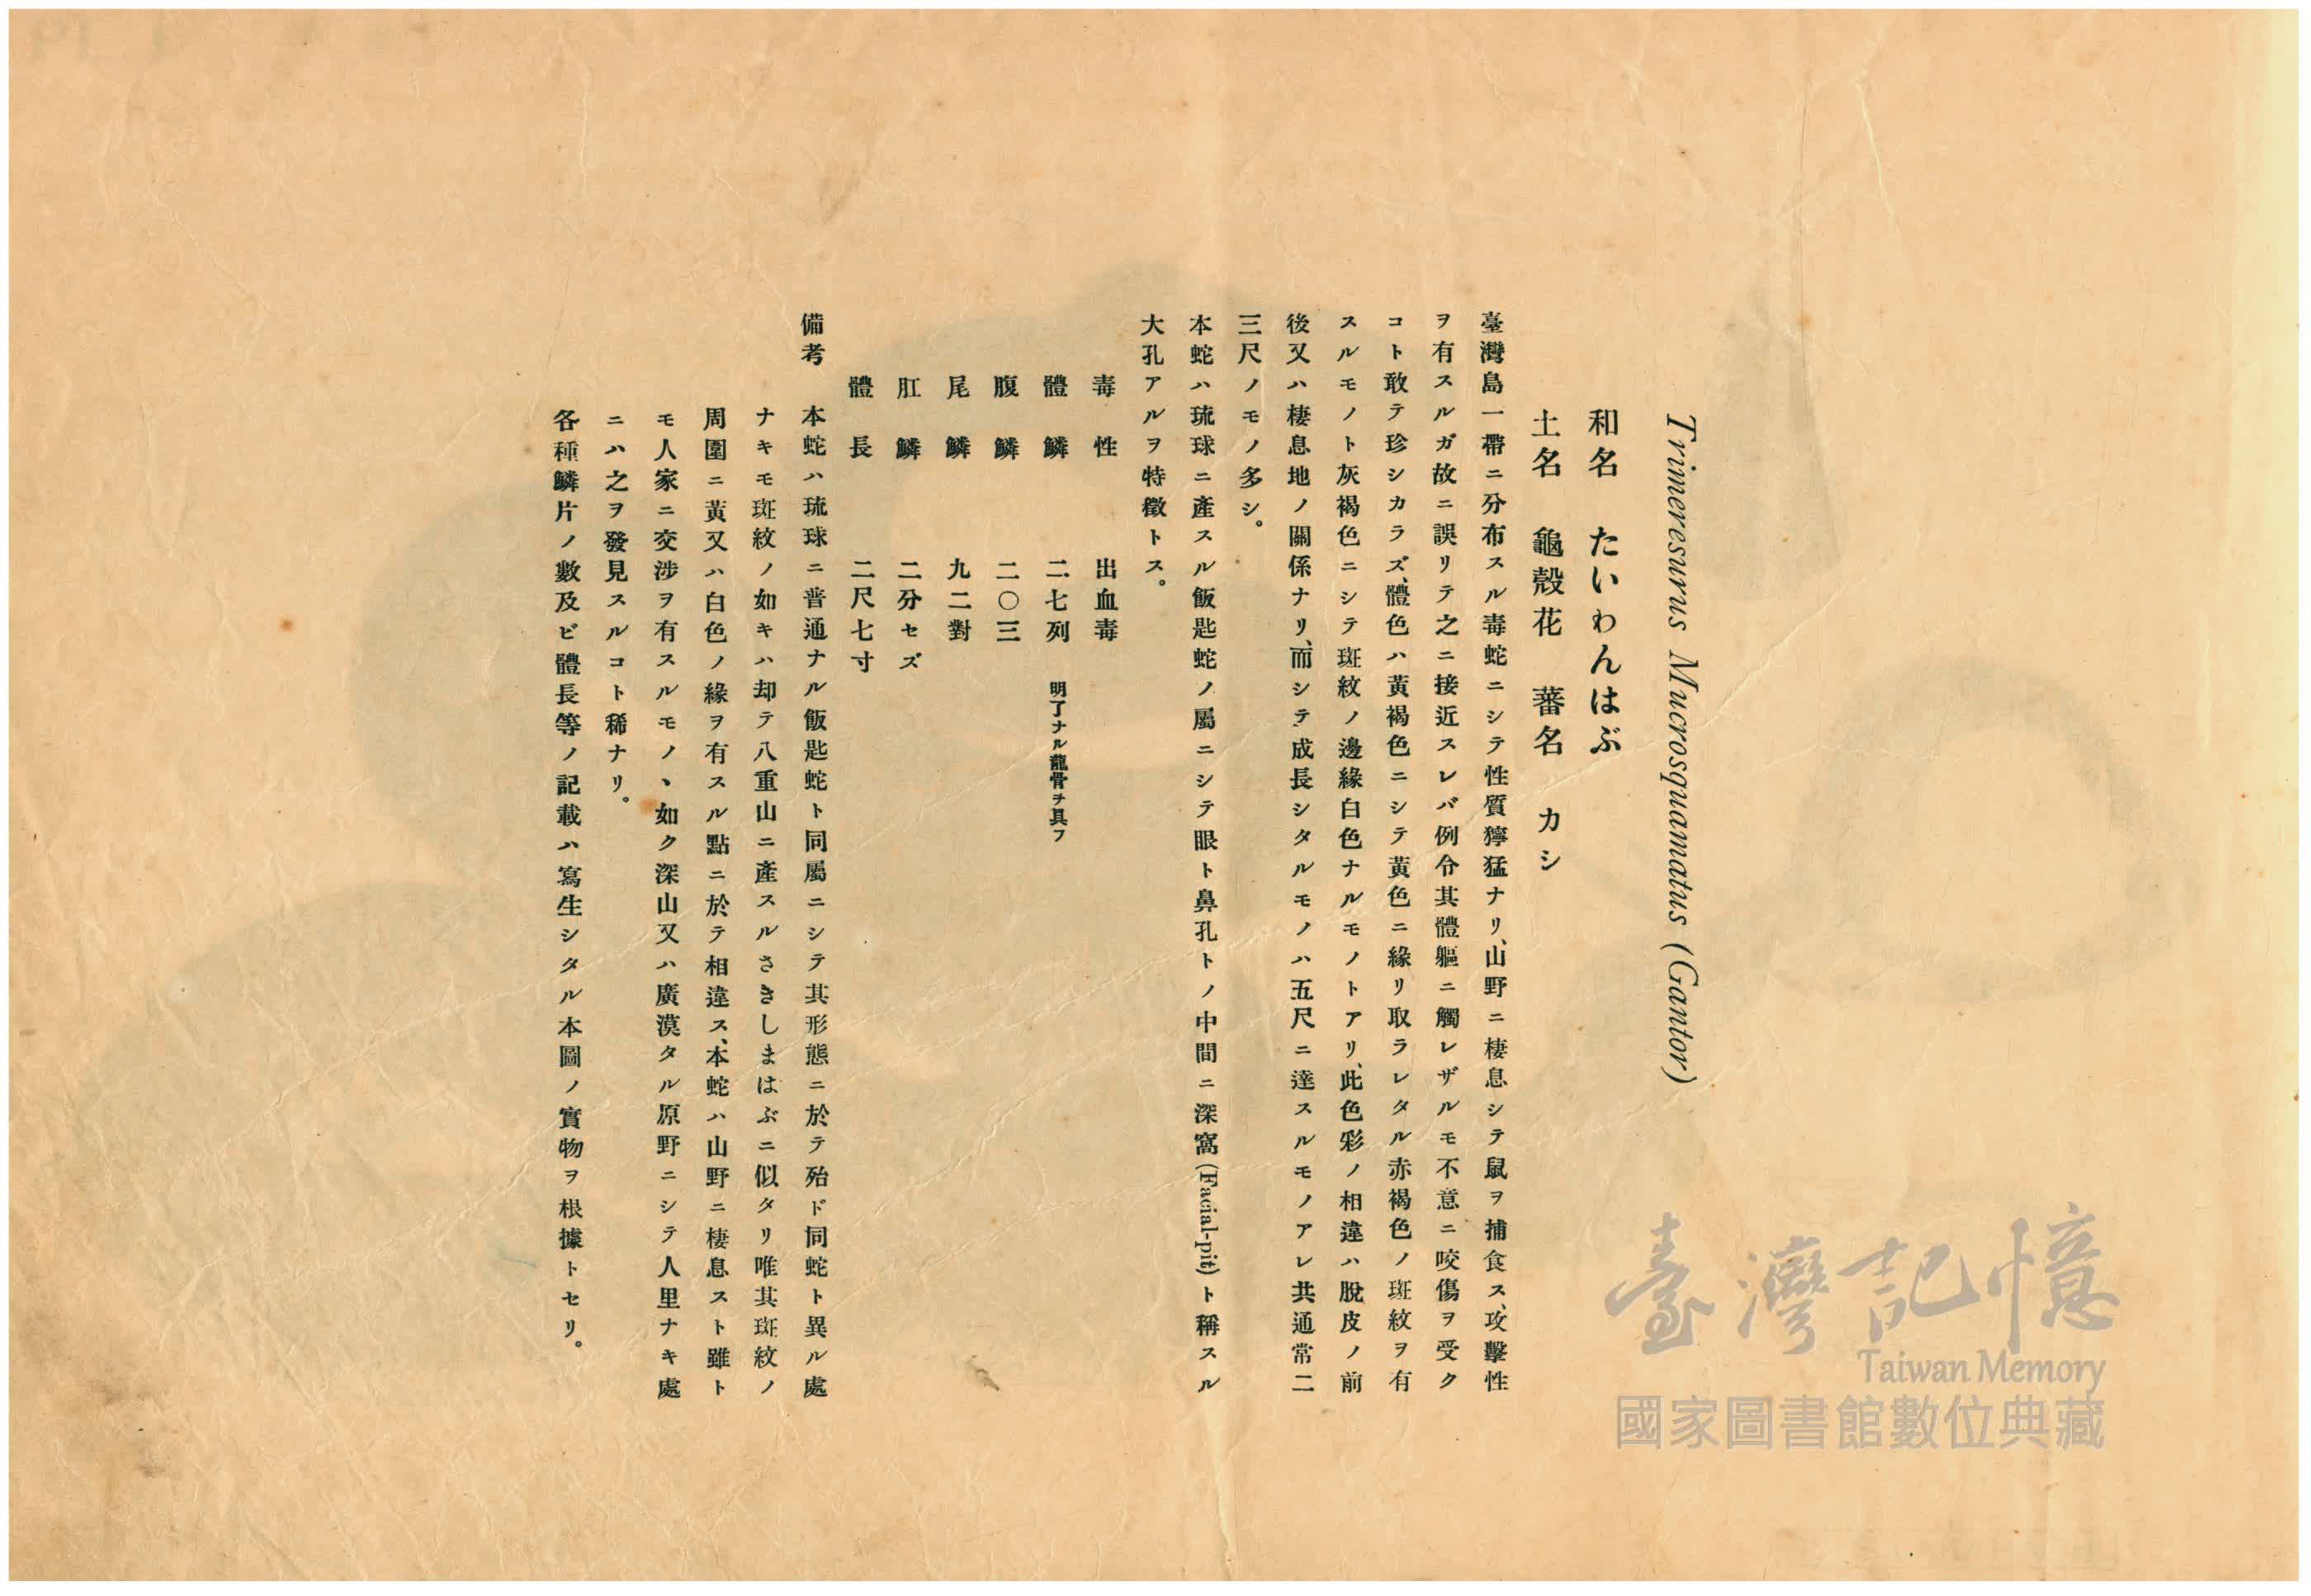 Trimeresurus Mucrosquamatus (Gantor)
和名 たいわんはぶ
土名 龜殼花 蕃名 カシ
臺灣島一帶ニ分布スル毒蛇ニシテ性質獰猛ナリ、山野ニ棲息シテ鼠ヲ捕食ス、攻擊性
ヲ有スルガ故ニ誤リテ之ニ接近スレバ例令其體軀ニ觸レザルモ不意ニ咬傷ヲ受ク
コト敢テ珍シカラズ、體色ハ黃褐色ニシテ黃色ニ緣リ取ラレタル赤褐色ノ斑紋ヲ有
スルモノト灰褐色ニシテ斑紋ノ邊緣白色ナルモノトアリ、此色彩ノ相違ハ脫皮ノ前
後又ハ棲息地ノ關係ナリ、而シテ成長シタルモノハ五尺ニ達スルモノアレ共通常二
三尺ノモノ多シ。
本蛇ハ琉球ニ產スル飯匙蛇ノ屬ニシテ眼ト鼻孔トノ中間ニ深窩(Facial-pit)ト稱スル
大孔アルヲ特徵トス。
毒性 出血毒
體鱗 二七列 明了ナル龍骨ヲ具フ
腹鱗 二〇三
尾鱗 九二對
肛鱗 二分セズ
體長 二尺七寸
備考 本蛇ハ琉球ニ普通ナル飯匙蛇ト同屬ニシテ其形態ニ於テ殆ド同蛇ト異ル處
ナキモ斑紋ノ如キハ却テ八重山ニ產スルさきしまはぶニ似タリ唯其斑紋ノ
周圍ニ黃又ハ白色ノ緣ヲ有スル點ニ於テ相違ス、本蛇ハ山野ニ棲息スト雖ト
モ人家ニ交涉ヲ有スルモノヽ如ク深山又ハ廣漠タル原野ニシテ人里ナキ處
ニハ之ヲ發見スルコト稀ナリ。
各種鱗片ノ數及ビ體長等ノ記載ハ寫生シタル本圖ノ實物ヲ根據トセリ。
臺灣記憶
Taiwan Memory
國家圖書館數位典藏